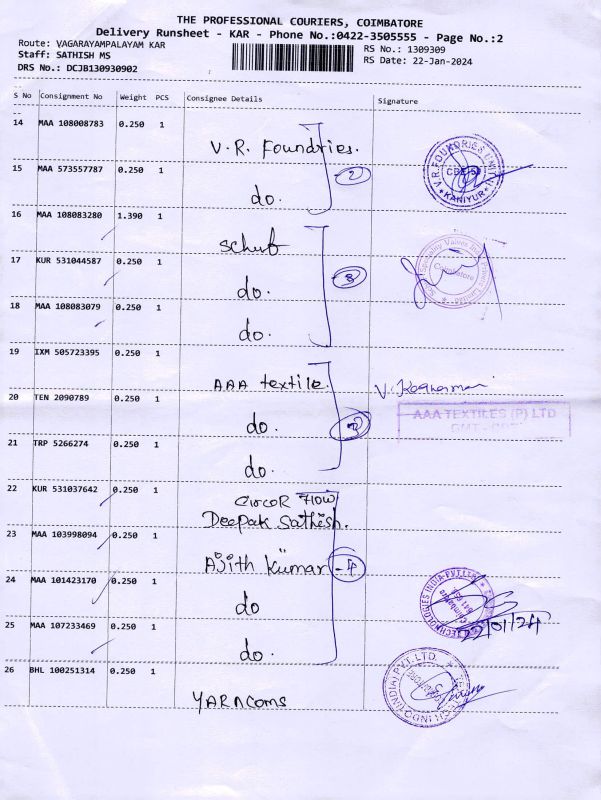 THE PROFESSIONAL COURIERS, COIMBATORE
Delivery Runsheet - KAR - Phone No.:0422-3505555 - Page No.:2
Route: VAGARAYAMPALAYAM KAR
RS No.: 1309309
Staff: SATHISH MS
RS Date: 22-Jan-2024
DRS No.: DCJB130930902
S No Consignment No Weight PCS Consignee Details Signature
14 MAA 108008783 0.250 1 V.R. Foundries.
15 MAA 573557787 0.250 1 do.
2
V.R. FOUNDRIES
KANIYUR
16 MAA 108083280 1.390 1 Schuf
17 KUR 531044587 0.250 1 do.
18 MAA 108083079 0.250 1 do.
3
Speciality Valves
Coimbatore
19 IXM 505723395 0.250 1 AAA textile.
20 TEN 2090789 0.250 1 do.
21 TRP 5266274 0.250 1 do.
AAA TEXTILES (P) LTD
22 KUR 531037642 0.250 1 Circor Flow
Deepak Sathish.
23 MAA 103998094 0.250 1 Ajith Kumar
24 MAA 101423170 0.250 1 do
25 MAA 107233469 0.250 1 do.
4
TECHNOLOGIES INDIA PVT LTD
22/01/24
26 BHL 100251314 0.250 1 YARNCOMS
(INDIA) PVT. LTD.